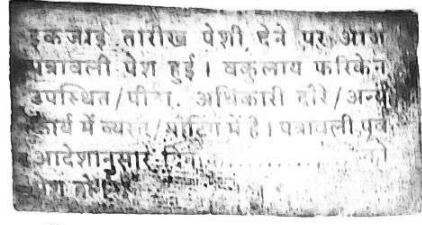 इकजाई तारीख पेशी देने पर आज
पत्रावली पेश हुई। वकुलाय फरिकेन
उपस्थित/पीठा. अधिकारी दौरे/अन्य
कार्य में व्यस्त/मीटिंग में है। पत्रावली पूर्व
आदेशानुसार दिनांक............को
पेश हो।